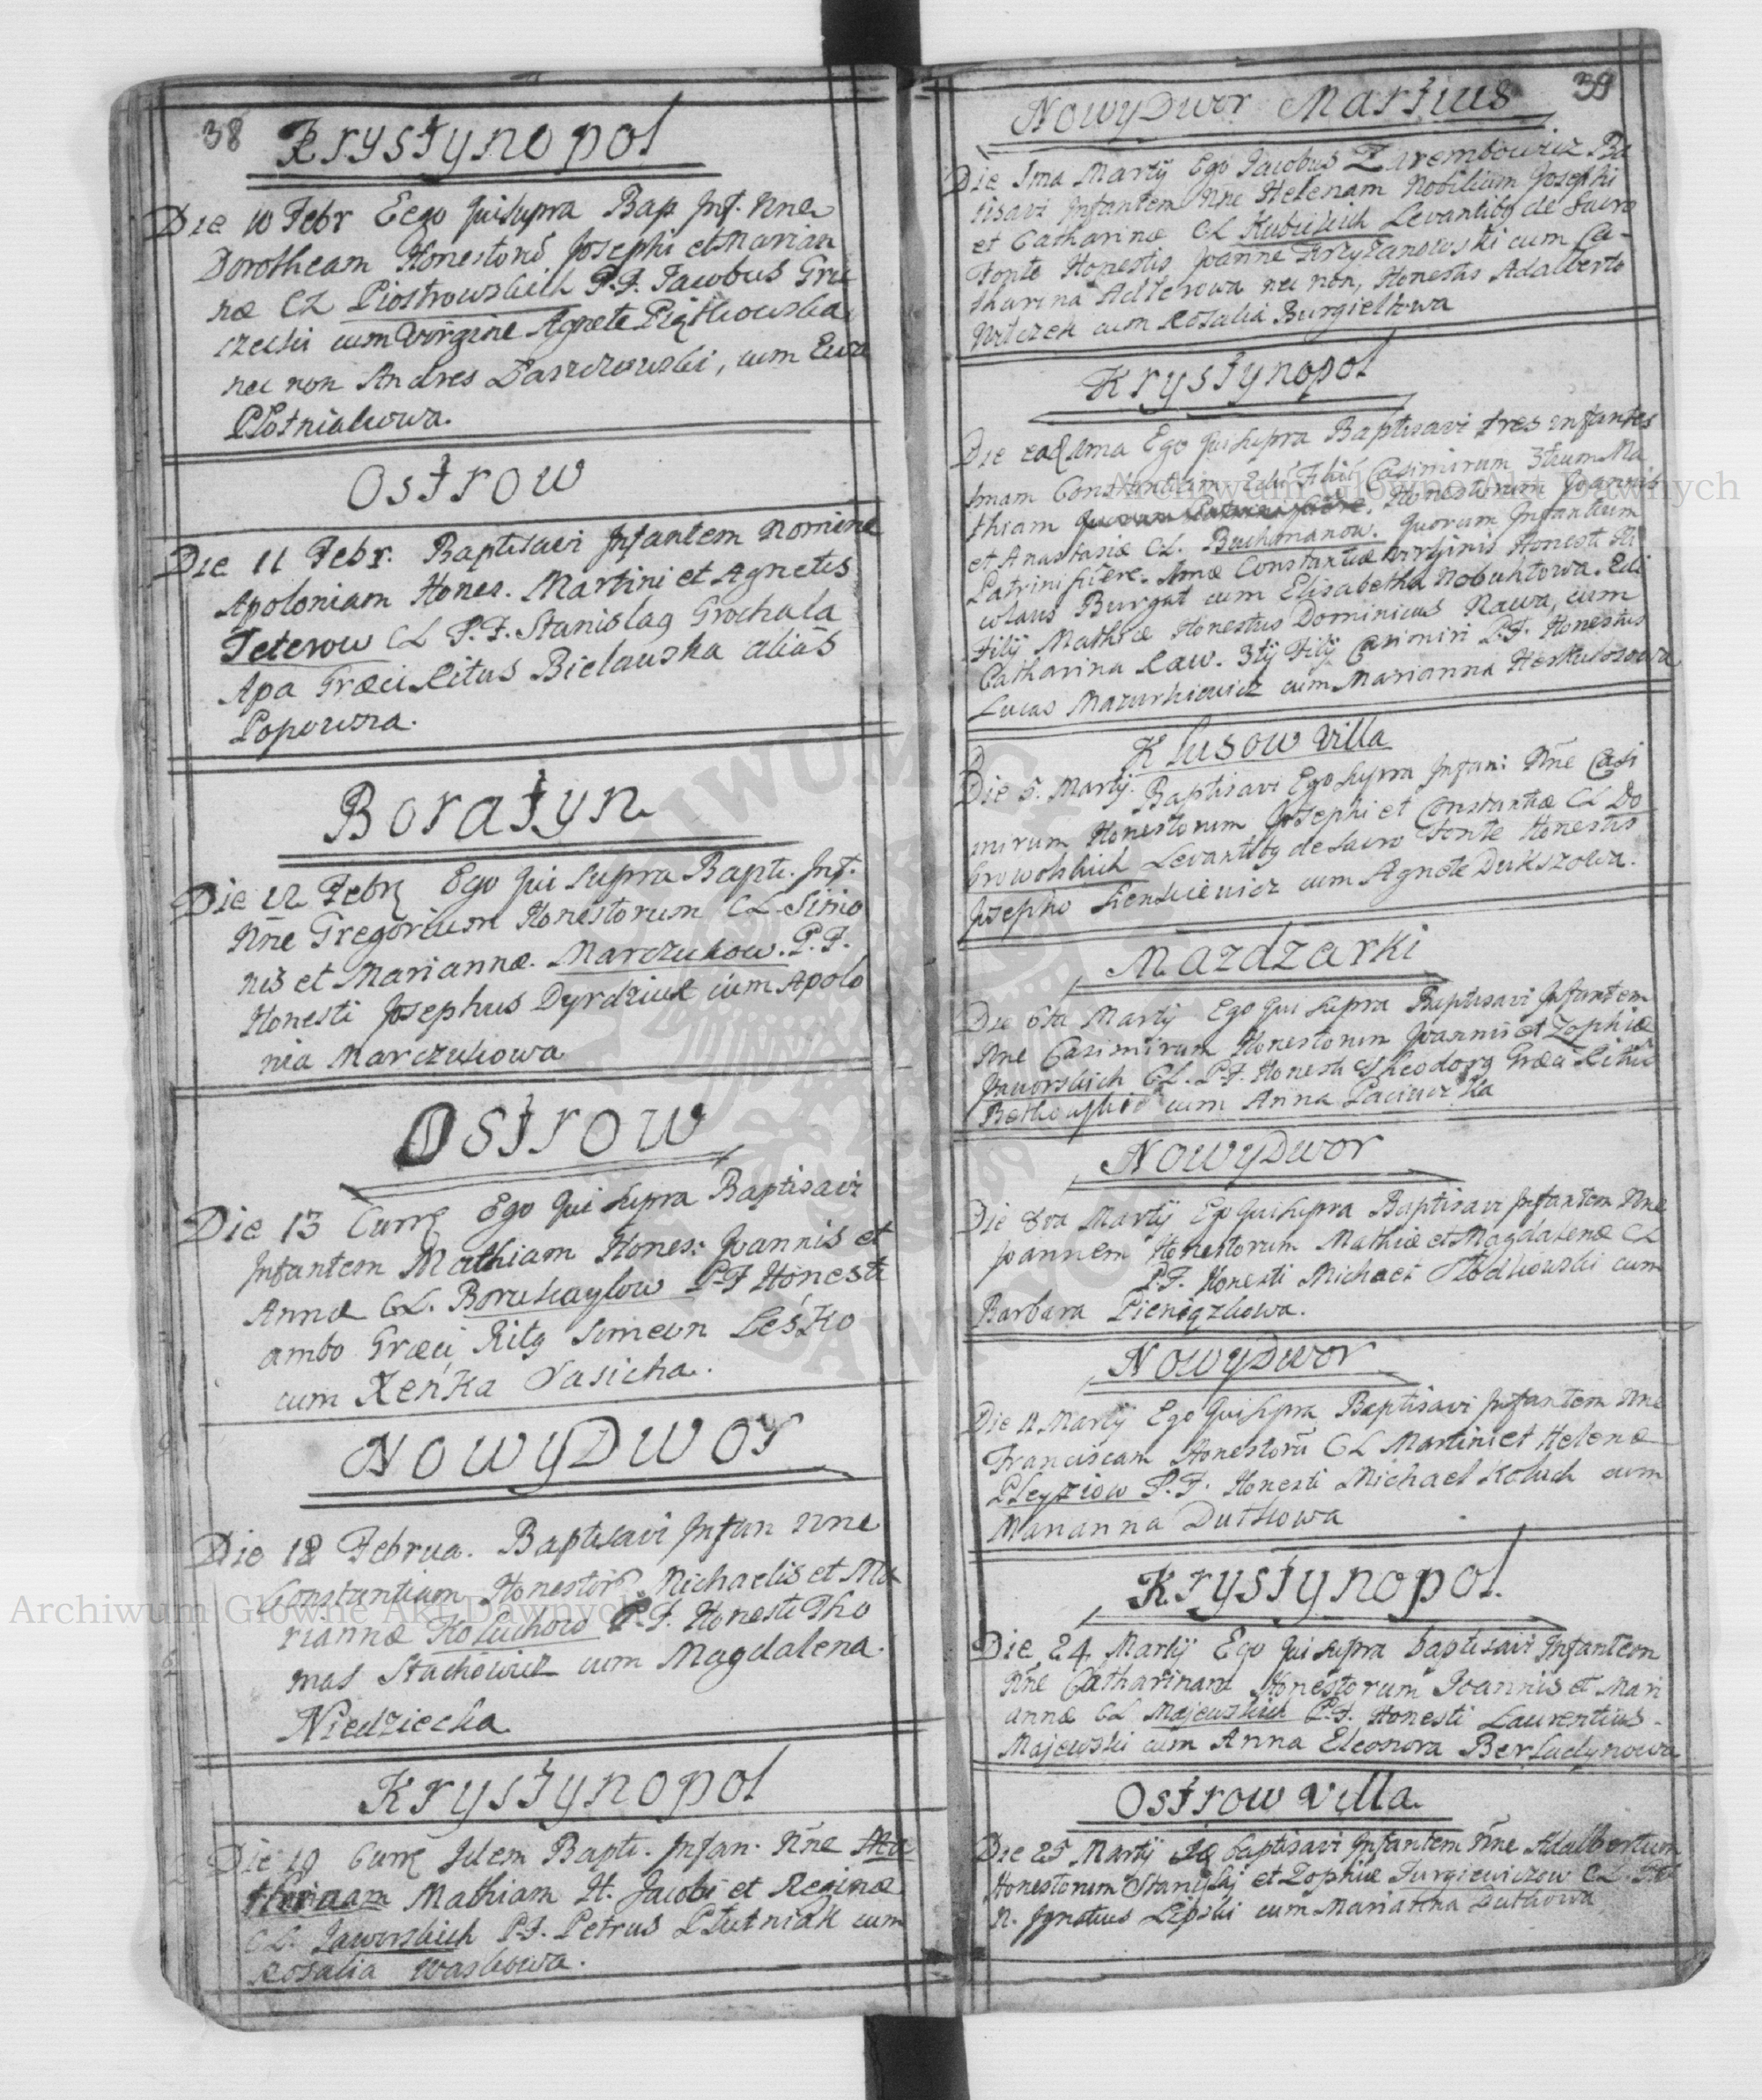 38
Krystynopol
Die 10 Febr Eego quisupra Bap Inf. Nne
Dorotheam Honestorũ Josephi et Marian
næ CL Piostrowskich P.P. Jacobus Gru
czecki cum Virgine Agnete Piątkowska
nec non Andres Daszczewski, cum Eva
Płotniakowa.
Ostrow
Die 11 Febr. Baptisavi Infantem Nomine
Apoloniam Hones. Martini et Agnetis
Teterow CL P.P. Stanislaq Grochala
Apa Græci Ritus Bielawska aliàs
Popowna.
Boratyn
Die 12 Febr Ego Qui Supra Bapti. Inf.
Nne Gregorium Honestorum CL Simo
nis et Mariannæ. Marczukow. P.P.
Honesti Josephus Dyrdziuk cum Apolo
nia Marczukowa
Ostrow
Die 13 Curr Ego Qui Supra Baptisavi
Infantem Mathiam Hones: Joannis et
Annæ CL. Boruhaylow P.P Honesti
ambo Græci Ritq Simeon Leśko
cum Xeńka Vasicha.
Nowy Dwor
Die 18 Februa. Baptisavi Infan Nne
Constantiam Honestorũ Michaelis et Ma
riannæ Koluchow P.P. Honesti Tho
mas Stachowicz cum Magdalena
Niedziecka
Krystynopol
Die 19 Curr Idem Bapti. Infan. Nne
Mathiam H. Jacobi et Reginæ
CL. Jaworskich P.P. Petrus Płutniak cum
Rosalia Waskowa.
39
Nowy Dwor Martius
Die 1ma Martij Ego Jacobus Zarembowicz Ba
tisavi Infantem Nne Helenam Nobilium Josephi
et Catharinæ CL Kubickich Levantibq de Sacro
Fonte Honestis Joanne Krzyżanowski cum Ca-
tharina Adlerowa nec non, Honestis Adalberto
Wilczek cum Rosalia Burgiełowa
Krystynopol
Die ead 1ma Ego Qui supra Baptisavi tres infantes
1mam Constantiam 2di Filii Casimirum 3tium Ma
thiam Honestorum Joannis
et Anastasiæ CL. Buchmanow. Quorum Infantium
Patrini fuere. 1mæ Constantiæ Virginis Honesti Ni
colaus Burgat cum Elisabetha Nobuhtowa. 2di
Filij Mathiæ Honestus Dominicus Nawa, cum
Catharina Raw. 3tij Filij Casimiri P.P. Honestus
Lucas Mazurkiewicz cum Marianna Herkulosowa
Klusow Villa
Die 5. Martij. Baptisavi Ego Supra Infan: Nne Casi
mirum Honestorum Josephi et Constantiæ CL Do
browolskich Levantibq de Sacro Fonte Honestis
Josepho Sienkiewicz cum Agnete Dukszowa.
Mazdzarki
Die 6ta Martij Ego Qui supra Baptisavi Infantem
Nne Casimirum Honestorum Joannis et Zophiæ
Jaworskich CL. P.P. Honesti Theodorq Græci Ritus
cum Anna
Nowy Dwor
Die 8va Martij Ego Qui supra Baptisavi Infantem Nne
Joannem Honestorum Mathiæ et Magdalenæ CL
P.P. Honesti Michael Słodkowski cum
Barbara Pieniązkowa.
Nowy Dwor
Die 11 Martij Ego Qui supra Baptisavi Infantem Nne
Franciscam Honestorũ CL Martini et Helenæ
Pleyziow P.P. Honesti Michael Koluch cum
Marianna Dutkowa
Krystynopol.
Die 24 Martij Ego Qui supra baptisavi Infantem
Nne Catharinam Honestorum Joannis et Mari
annæ CL Majewskich P.P. Honesti Laurentius
Majewski cum Anna Eleonora Berladynowa
Ostrow Villa
Die 25 Martij baptisavi Infantem Nne Adalbertum
Honestorum Stanislaj et Zophiæ Jurgiewiczow CL
H. Ignatius Lipski cum Marianna Dutkowa
Archiwum Główne Akt Dawnych
Archiwum Główne Akt Dawnych